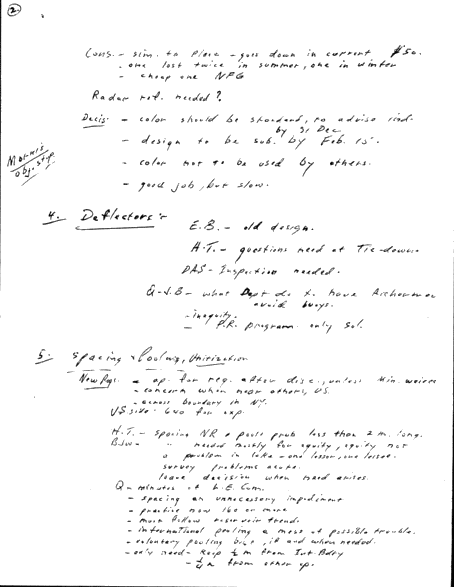 2.
Cons. - sim. to Place - goes down in current $50.
- one lost twice in summer, one in winter
- cheap one NFG
Radar ref. needed?
Decis: - color should be standard, to advise ind.
by 31 Dec
- design to be sub. by Feb. 15.
- color not to be used by others.
- good job, but slow.
4. Deflectors:
E.B. - old design.
H.T. - questions need at Tie-down
DAS - Inspection needed.
Q-J.B - what Dept do to have
avoid buoys.
- inequity.
- P.R. program only sol.
5. Spacing & Pooling, Unitization
New Regs. - op. for reg. after disc., unless Min. waives
- concern when near others, US.
- across boundary in NY.
US side - 640 for exp.
H.T. - Spacing NR & pools prob less than 2 m. long.
BJW - " needed mostly for equity, equity not
a problem in lake - one lessor, one lessee.
survey problems acute.
leave decision when need arises.
Q - minutes of L.E. Com.
- spacing an unnecessary impediment
- practice now 160 or more
- must follow reservoir trend.
- international pooling a mess of possible trouble.
- voluntary pooling best, if and when needed.
- only need - keep ½ m from Int. Bdry
- ¼ m from other op.